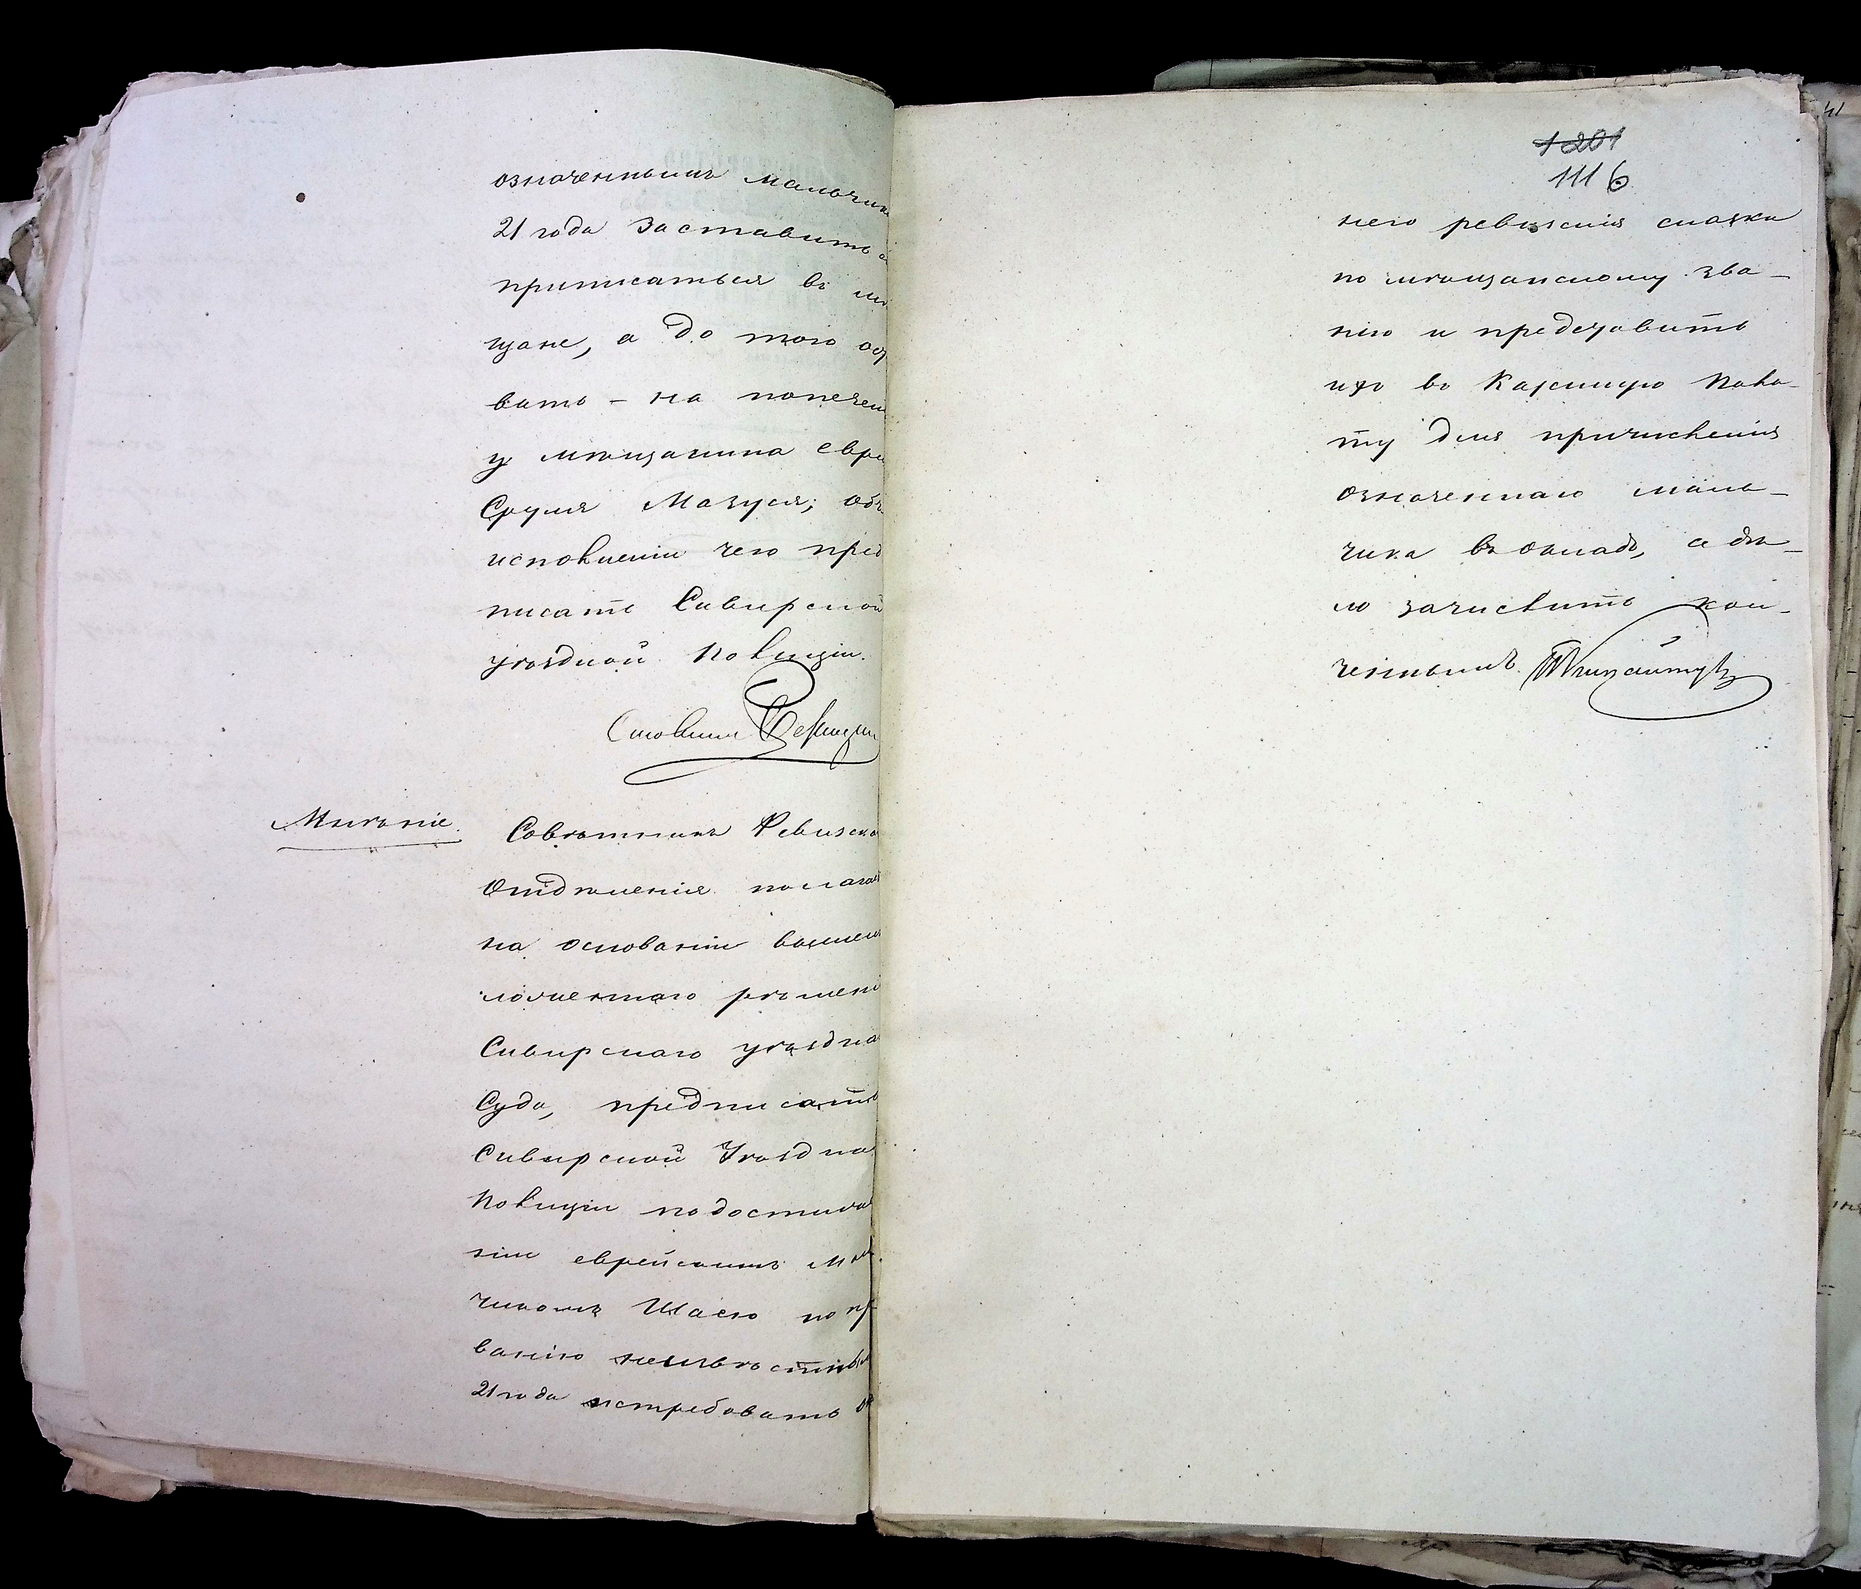 означеннымъ мальчик
21 года заставить
приписаться въ мѣ
щане, а до того ос
вать – на попечен
у мѣщанина евре
Сруля Мазуся; объ
исполненіи чего пред
писать Сквирской
уѣздной Полиціи.
Столонач
Мнѣніе.
Совѣтникъ Ревизска
Отдѣленія полагае
на основаніи выше
ложеннаго рѣшені
Сквирскаго уѣздна
Суда, предписать
Сквирской Уѣздно
Полиціи по достиже
ніи еврейскимъ мал
чикомъ Шаею по пр
ванію неизвѣстны
21 года истребовать о
1201
1116
него ревизскія сказки
по мѣщанскому зва-
нію и представить
ихъ въ Казенную Пала-
ту для причисленія
означеннаго маль-
чика въ окладъ, а дѣ-
ло зачислить кон-
ченнымъ.